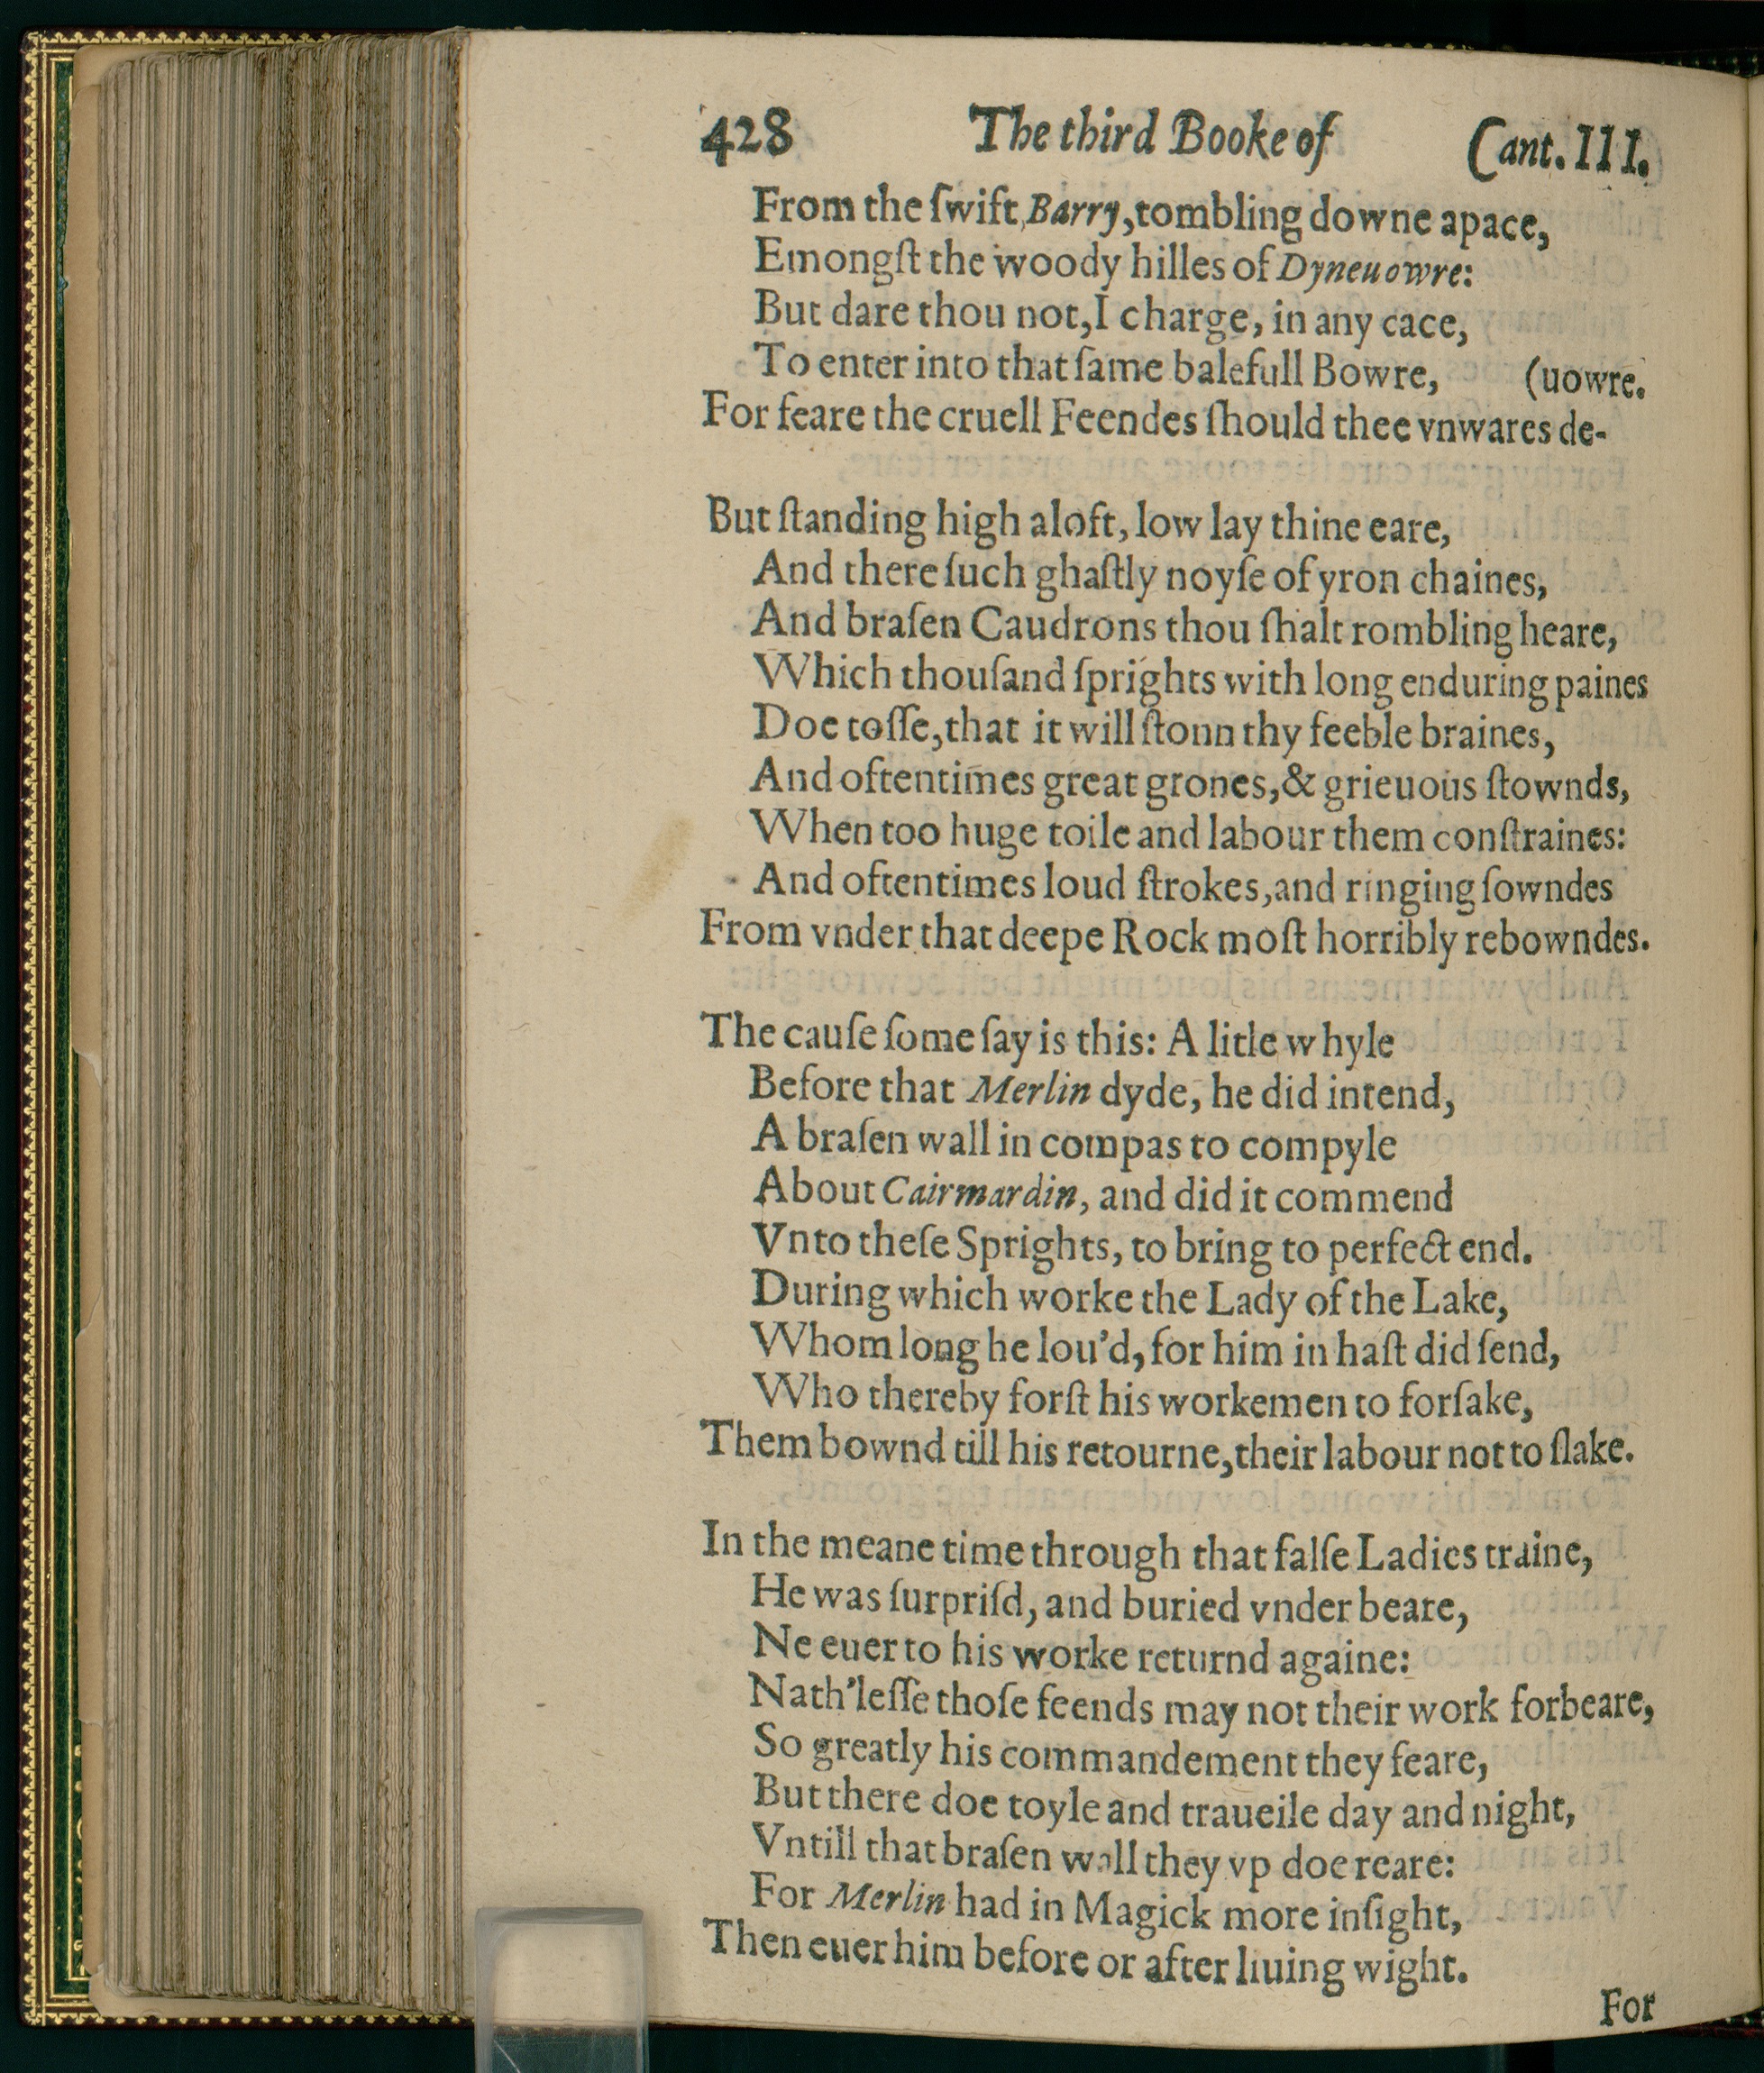 428 The third Booke of Cant. III.
From the ſwift Barry, tombling downe apace,
Emongſt the woody hilles of Dyneuowre:
But dare thou not, I charge, in any cace,
To enter into that ſame balefull Bowre, (uowre.
For feare the cruell Feendes ſhould thee vnwares de-
But ſtanding high aloft, low lay thine eare,
And there ſuch ghaſtly noyſe of yron chaines,
And braſen Caudrons thou ſhalt rombling heare,
Which thouſand ſprights with long enduring paines
Doe toſſe, that it will ſtonn thy feeble braines,
And oftentimes great grones, & grieuous ſtownds,
When too huge toile and labour them conſtraines:
And oftentimes loud ſtrokes, and ringing ſowndes
From vnder that deepe Rock moſt horribly rebowndes.
The cauſe ſome ſay is this: A litle whyle
Before that Merlin dyde, he did intend,
A braſen wall in compas to compyle
About Cairmardin, and did it commend
Vnto theſe Sprights, to bring to perfect end.
During which worke the Lady of the Lake,
Whom long he lou'd, for him in haſt did ſend,
Who thereby forſt his workemen to forſake,
Them bownd till his retourne, their labour not to ſlake.
In the meane time through that falſe Ladies traine,
He was ſurpriſd, and buried vnder beare,
Ne euer to his worke returnd againe:
Nath'leſſe thoſe feends may not their work forbeare,
So greatly his commandement they feare,
But there doe toyle and traueile day and night,
Vntill that braſen wall they vp doe reare:
For Merlin had in Magick more inſight,
Then euer him before or after liuing wight.
For